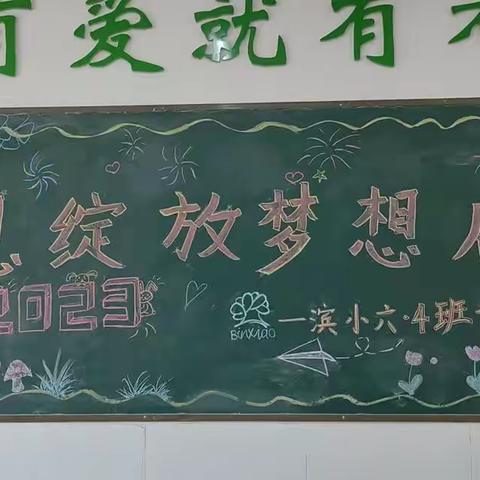 有爱就有
绽放梦想
2023
BinXiao
一滨小六·4班